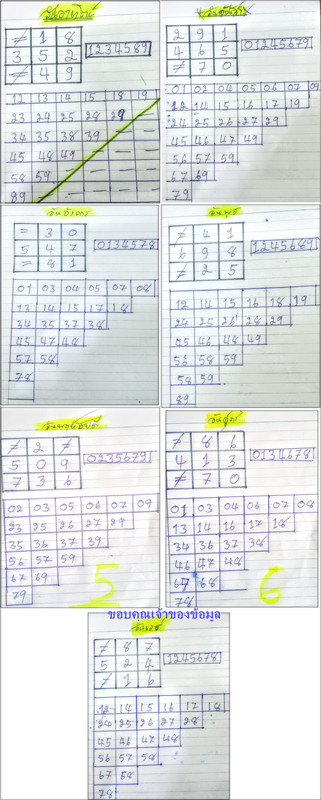 วันอาทิตย์
≠ 1 8
3 5 2 1234589
≠ 4 9
12 13 14 15 18 19
23 24 25 28 29 —
34 35 38 39 — —
45 48 49 — — —
58 59 — — — —
89 — — — — —
วันจันทร์
2 9 1
4 6 5 01245679
≠ 7 0
01 02 04 05 06 07 09
12 14 15 16 17 19
24 25 26 27 29
45 46 47 49
56 57 59
67 69
79
วันอังคาร
= 3 0
5 4 7 0134578
= 8 1
01 03 04 05 07 08
13 14 15 17 18
34 35 37 38
45 47 48
57 58
78
วันพุธ
≠ 4 1
6 9 8 1245689
≠ 2 5
12 14 15 16 18 19
24 25 26 28 29
45 46 48 49
56 58 59
58 59
89
วันพฤหัสบดี
≠ 2 ≠
5 0 9 0235679
7 3 6
02 03 05 06 07 09
23 25 26 27 29
35 36 37 39
56 57 59
67 69
79
5
วันศุกร์
≠ 8 6
4 1 3 0134678
≠ 7 0
01 03 04 06 07 08
13 14 16 17 18
34 36 37 38
46 47 48
67 68
78
6
ขอบคุณเจ้าของข้อมูล
วันเสาร์
≠ 8 7
5 2 4 1245678
≠ 1 6
12 14 15 16 17 18
24 25 26 27 28
45 46 47 48
56 57 58
67 68
78